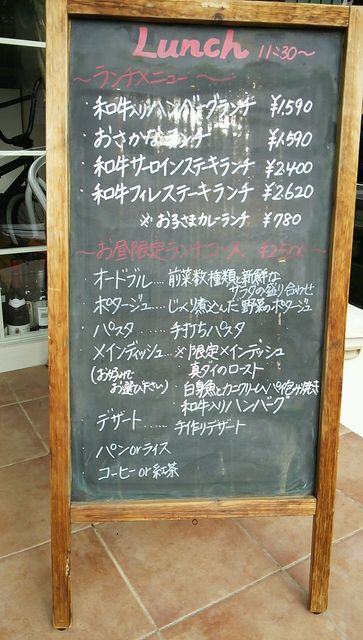 Lunch 11:30〜
〜ランチメニュー〜
・和牛入りハンバーグランチ ¥1,590
・おさかなランチ ¥1,590
・和牛サーロインステーキランチ ¥2,400
・和牛フィレステーキランチ ¥2,620
※お子さまカレーランチ ¥780
〜お昼限定ランチコース
・オードブル…… 前菜数種類と新鮮な
サラダの盛り合わせ
・ポタージュ…… じっくり煮込んだ野菜のポタージュ
・パスタ…… 手打ちパスタ
・メインディッシュ…… ※限定メインディッシュ
(お好みで
お選び下さい)
真ダイのロースト
白身魚とカニクリームパイ包み焼き
和牛入りハンバーグ
・デザート…… 手作りデザート
・パンorライス
・コーヒーor紅茶